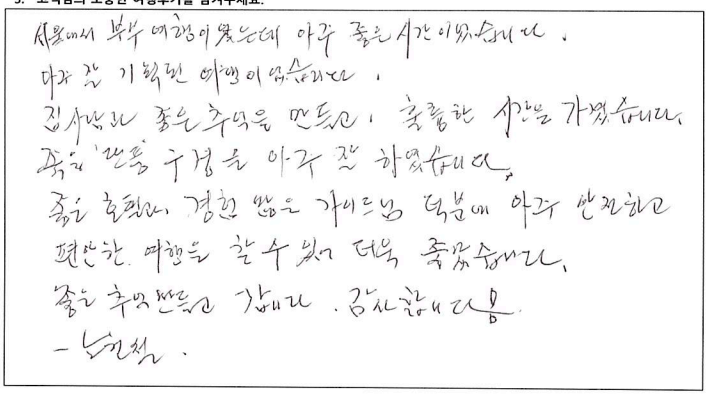 3. 고객님의 소중한 여행후기를 남겨주세요.
서울에서 부부 여행이 왔는데 아주 좋은 시간이었습니다.
아주 잘 기획된 여행이었습니다.
집사람과 좋은 추억을 만들고, 훌륭한 시간을 가졌습니다.
구경을 아주 잘 하였습니다.
좋은 호텔과, 경험 많은 가이드님 덕분에 아주 안전하고
편안한 여행을 할 수 있어 더욱 좋았습니다.
좋은 추억 만들고 갑니다. 감사합니다